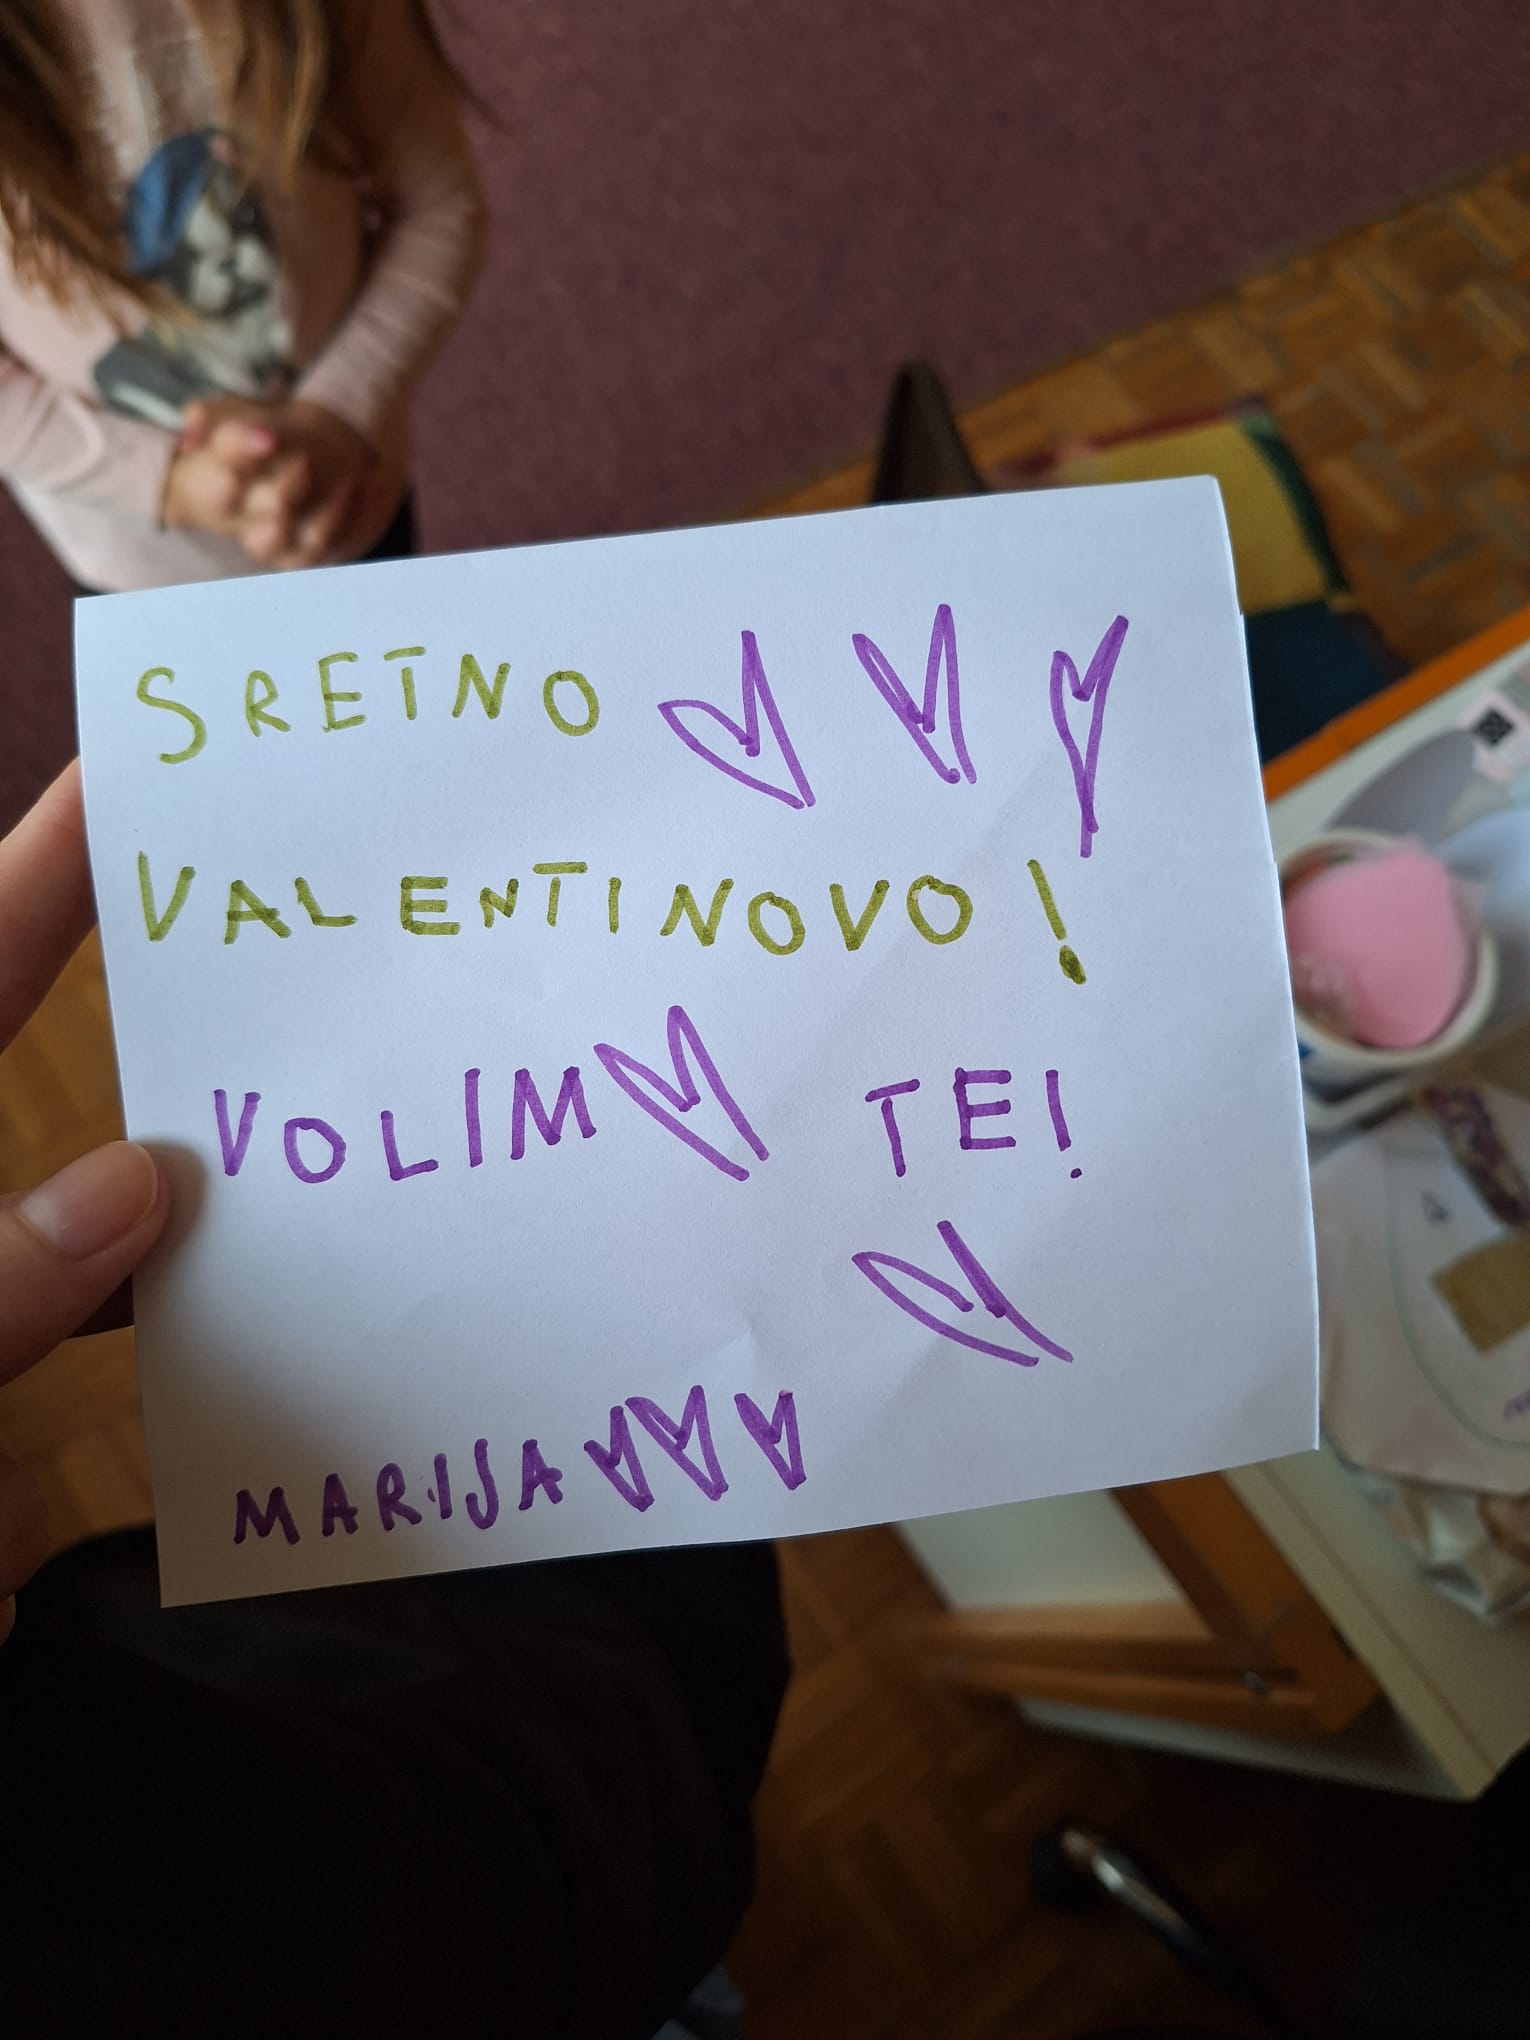 SRETNO
VALENTINOVO!
VOLIM TE!
MARIJA